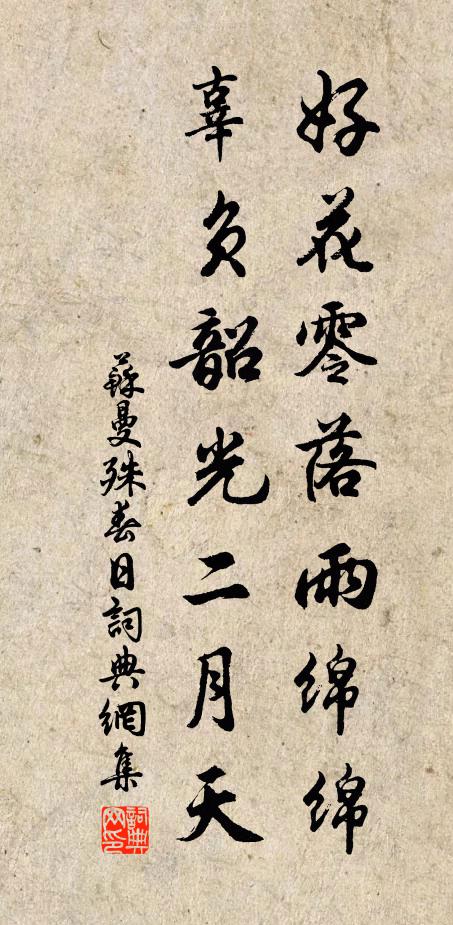 好花零落雨綿綿
辜負韶光二月天
蘇曼殊春日詞典網集
詞典网印